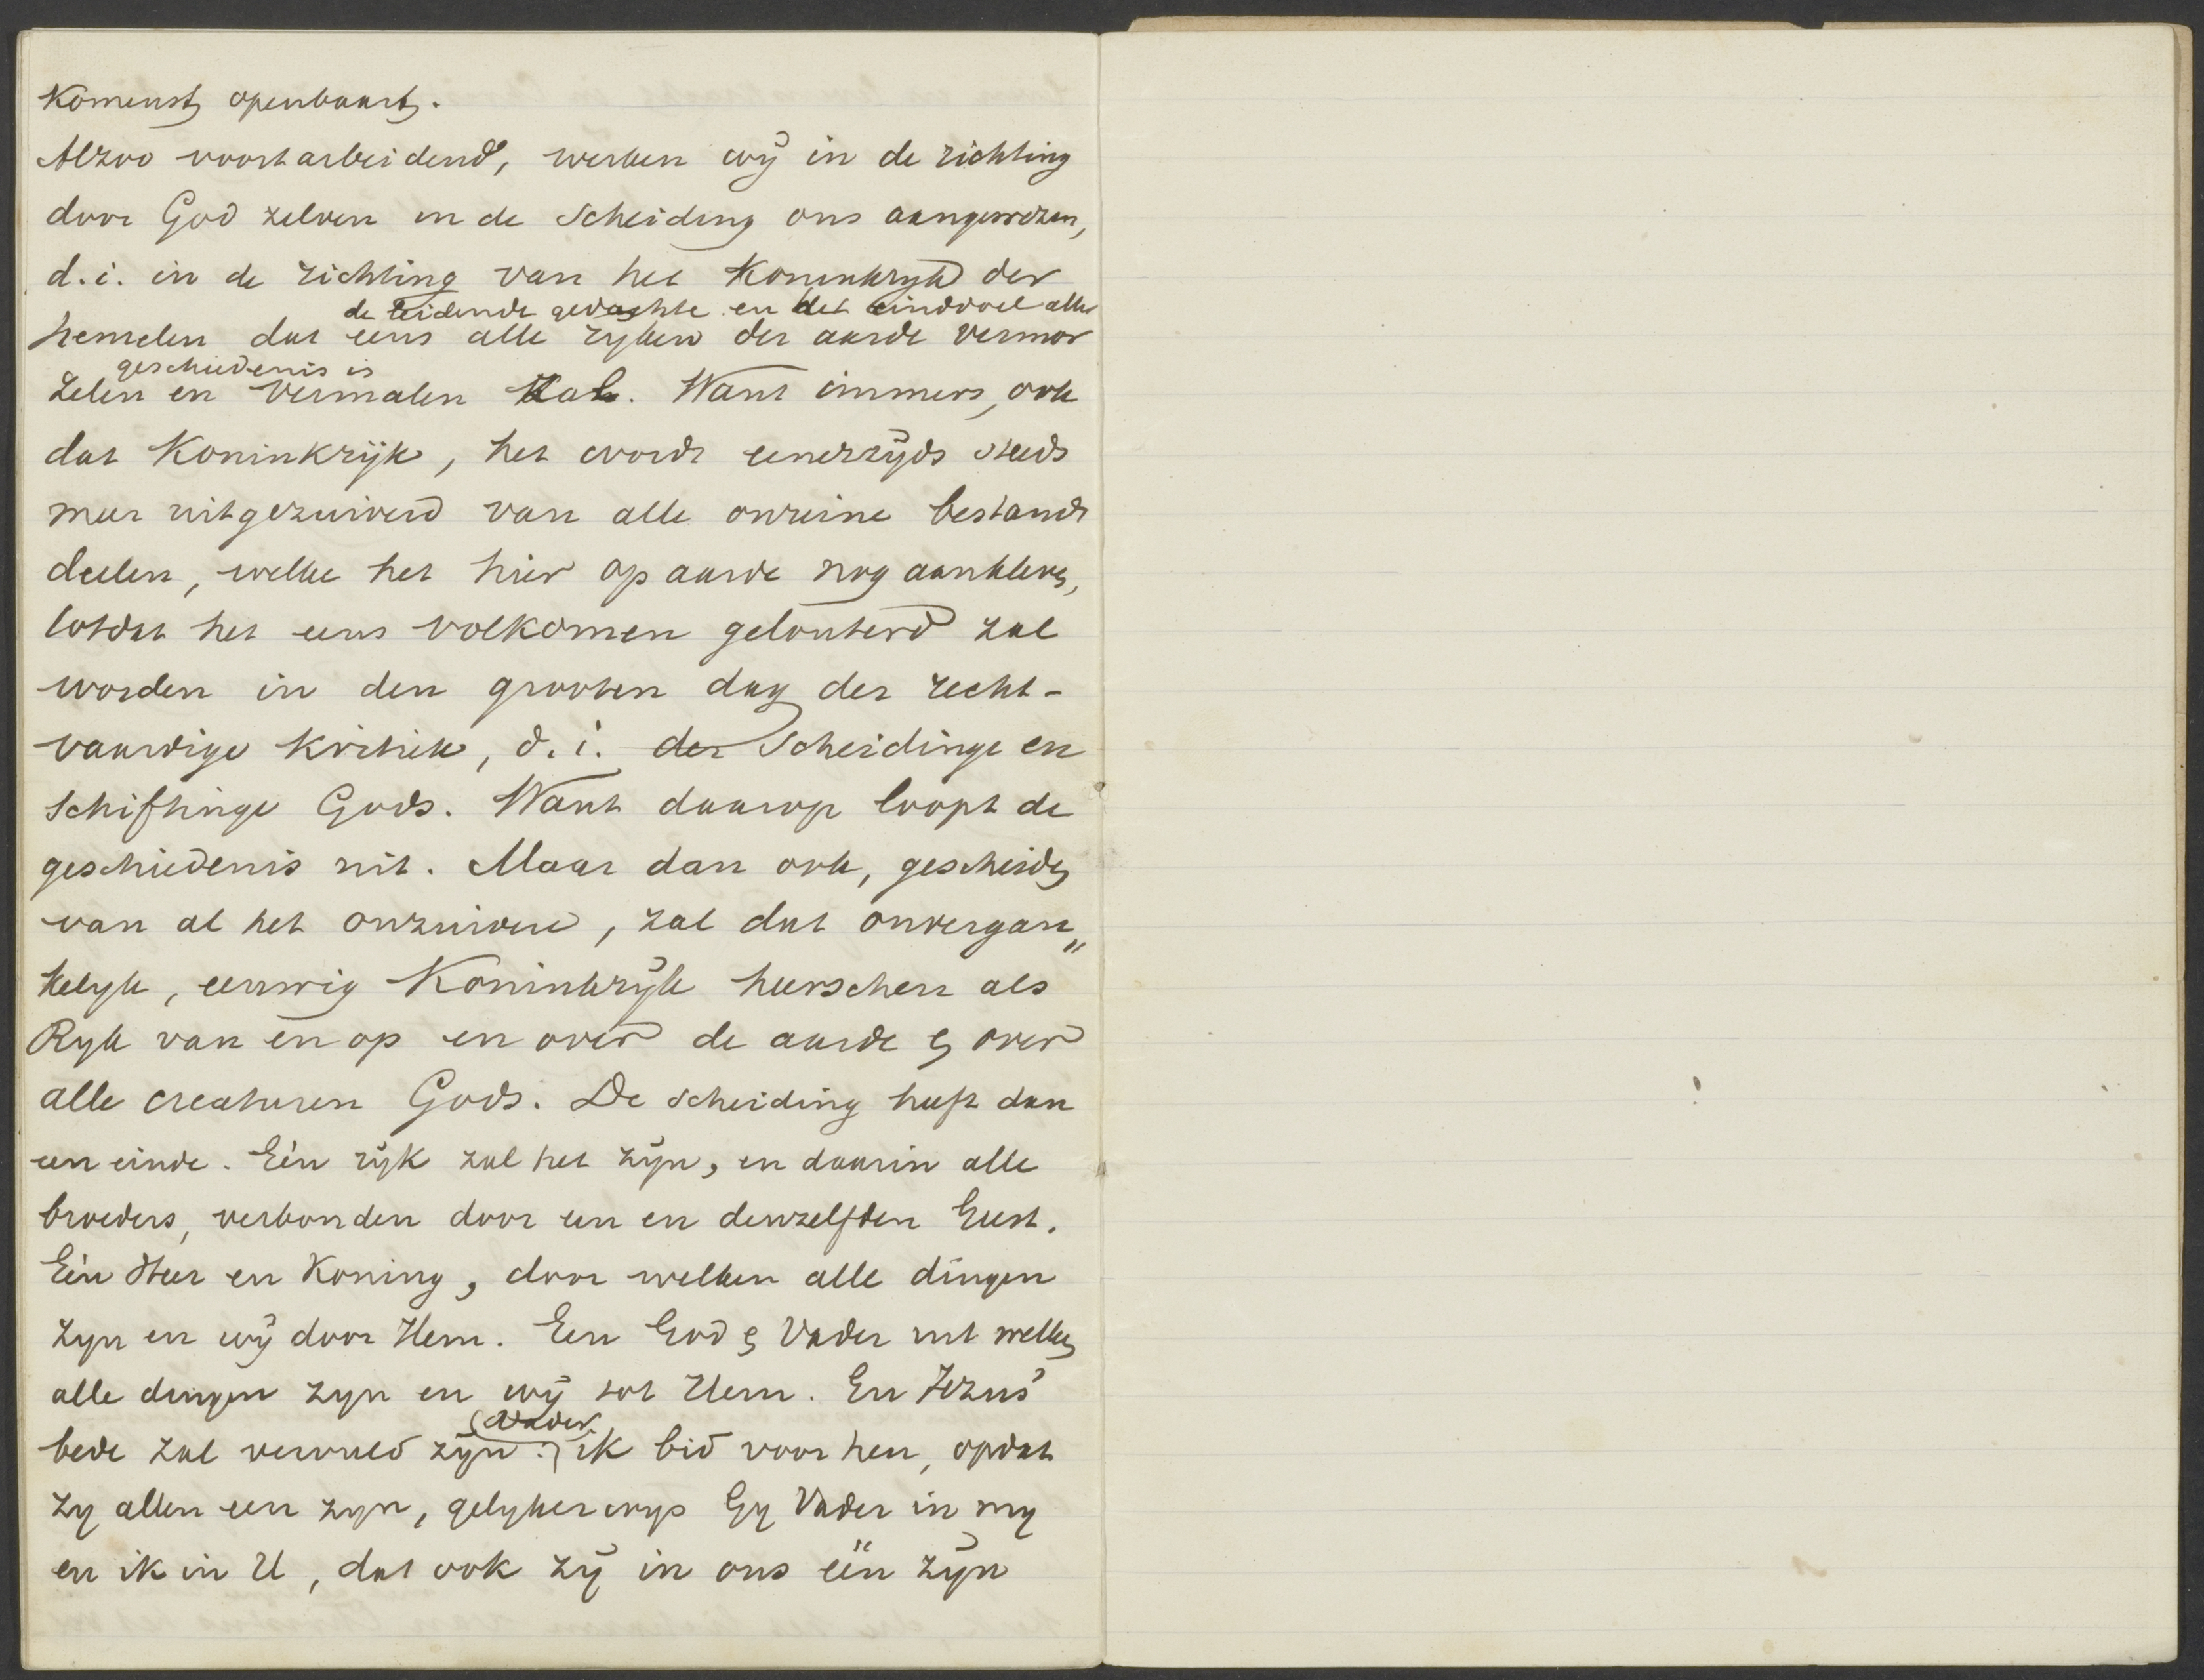 komenst openbaart.
Alzoo voortarbeidend, werken wij in de richting
door God zelven in de Scheiding ons aangewezen,
d.i. in de richting van het Koninkryk der
de leidende gedachte en het einddoel aller
hemelen dat eens alle ryken der aarde vermor
geschiedenis is
zelen en vermalen zal. Want immers, ook
dat Koninkrijk, het wordt eenerzijds steeds
meer uitgezuiverd van alle onreine bestand
deelen, welke het hier op aarde nog aankleven,
totdat het eens volkomen gelouterd zal
worden in den grooten dag der recht-
vaardige kritiek, d.i. der Scheidinge en
Schiftinge Gods. Want daarop loopt de
geschiedenis uit. Maar dan ook, gescheiden
van al het onzuivere, zal dat onvergan"
kelyk, eeuwig Koninkrijk heerschen als
Ryk van en op en over de aarde en over
alle creaturen Gods. De scheiding heeft dan
een einde. Eén rijk zal het zijn, en daarin alle
broeders, verbonden door een en denzelfden Geest.
Eén Heer en Koning, door welken alle dingen
zyn en wij door Hem. Een God en Vader uit welken
alle dingen zyn en wij tot Hem. En Jezus'
(Vader,
bede zal vervuld zijn: ik bid voor hen, opdat
zy allen een zyn, gelykerwys Gy Vader in my
en ik in U, dat ook zij in ons één zijn